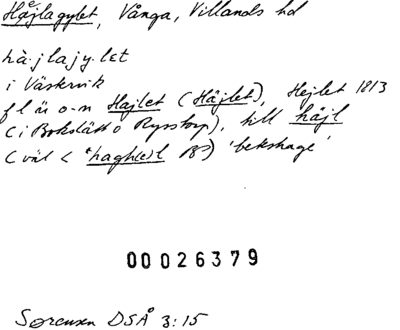 Häjlagylet, Vånga, Villands hd
hà.jlajy.let
i Väskvik
fl äu o-n Hajlet (Häjlet), Hejlet 1813
(i Bökslätt o Rysstorp), till häjl
(väl < *hagh(e)l) 'bokskage'
00026379
Sørensen DSÅ 3:15